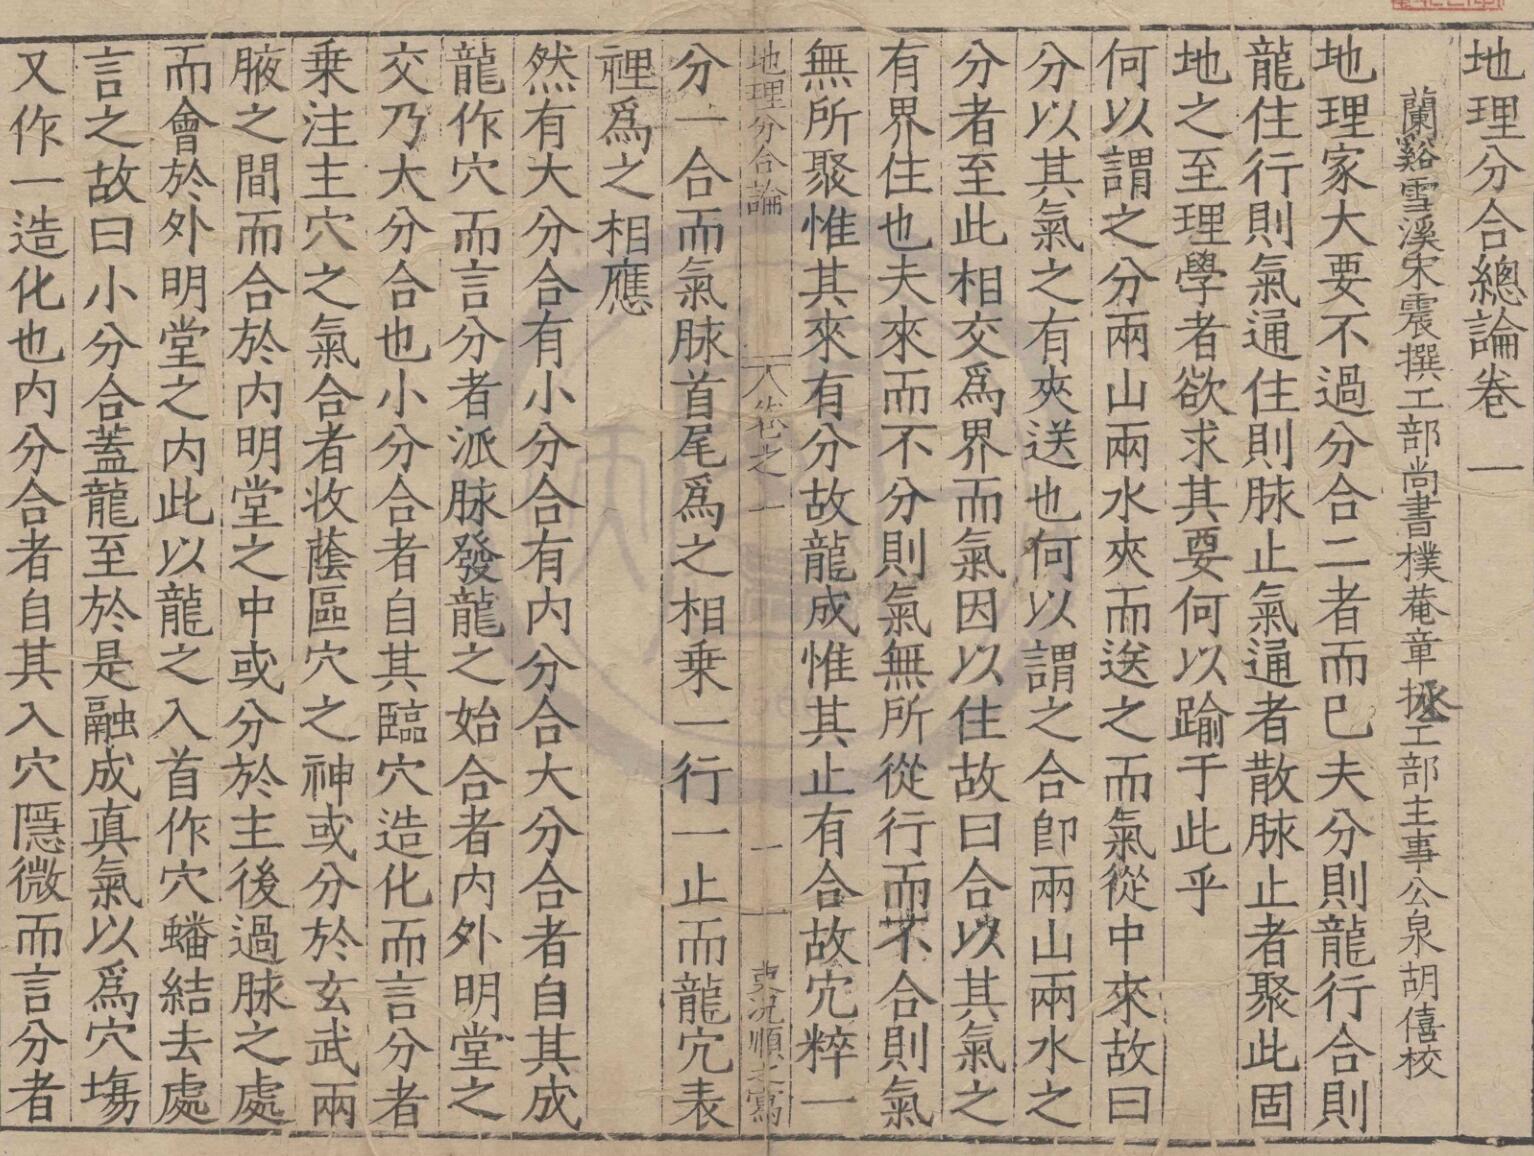 地理分合總論卷一
蘭谿雪溪宋震撰工部尚書樸菴章拯工部主事公泉胡僖校
地理家大要不過分合二者而巳夫分則龍行合則
龍住行則氣通住則脉止氣通者散脉止者聚此固
地之至理學者欲求其要何以踰于此乎
何以謂之分兩山兩水夾而送之而氣從中來故曰
分以其氣之有夾送也何以謂之合卽兩山兩水之
分者至此相交爲界而氣因以住故曰合以其氣之
有界住也夫來而不分則氣無所從行而不合則氣
無所聚惟其來有分故龍成惟其止有合故穴粹一
地理分合論 卷之一 一 吏况順之寫
分一合而氣脉首尾爲之相乗一行一止而龍穴表
裡爲之相應
然有大分合有小分合有内分合大分合者自其成
龍作穴而言分者派脉發龍之始合者内外明堂之
交乃大分合也小分合者自其臨穴造化而言分者
乗注主穴之氣合者收蔭區穴之神或分於玄武兩
腋之間而合於内明堂之中或分於主後過脉之處
而會於外明堂之内此以龍之入首作穴蟠結去處
言之故曰小分合蓋龍至於是融成真氣以爲穴塲
又作一造化也内分合者自其入穴隱微而言分者